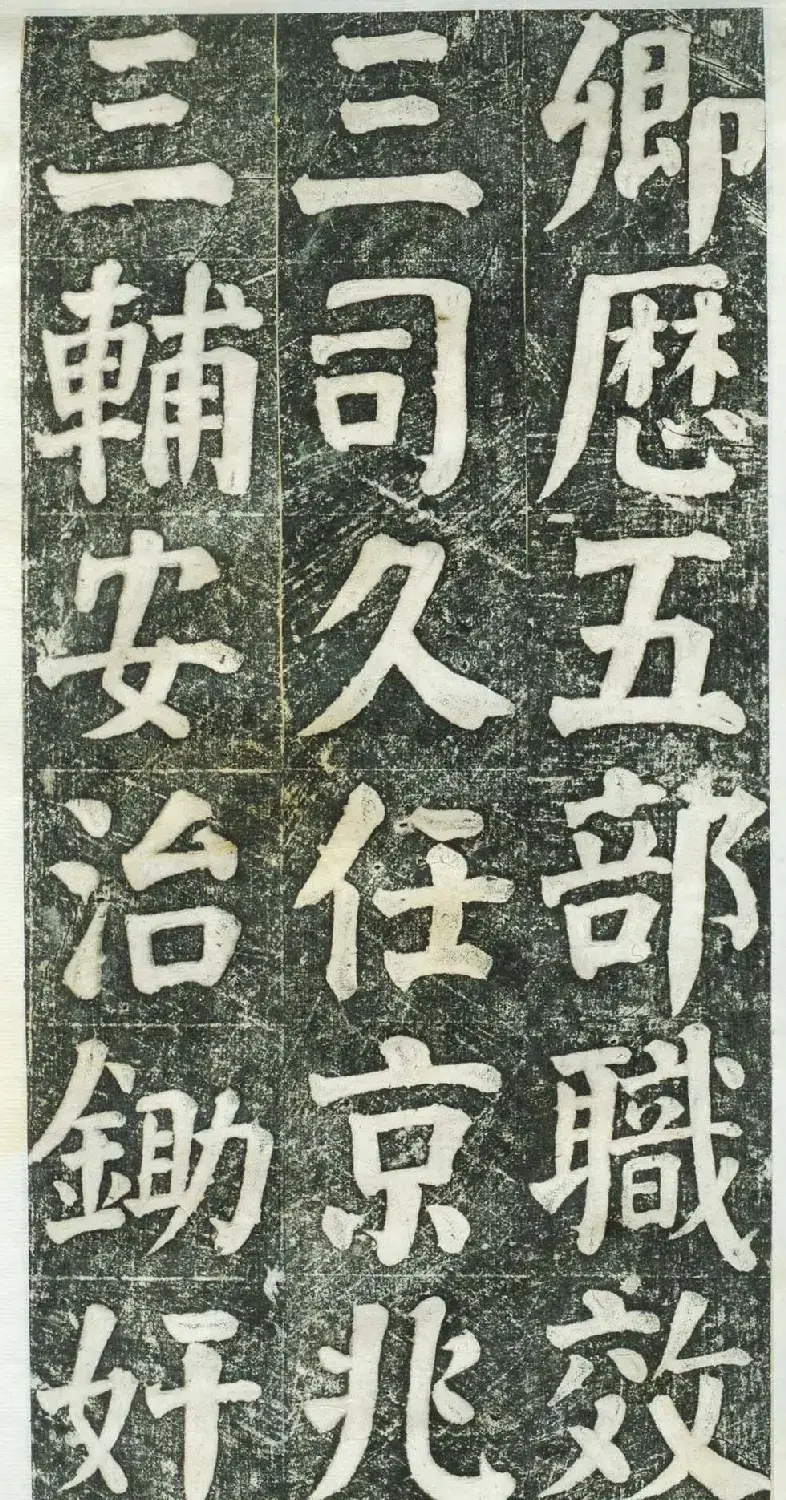 卿歷五部職效
三司久任京兆
三輔安治鋤奸